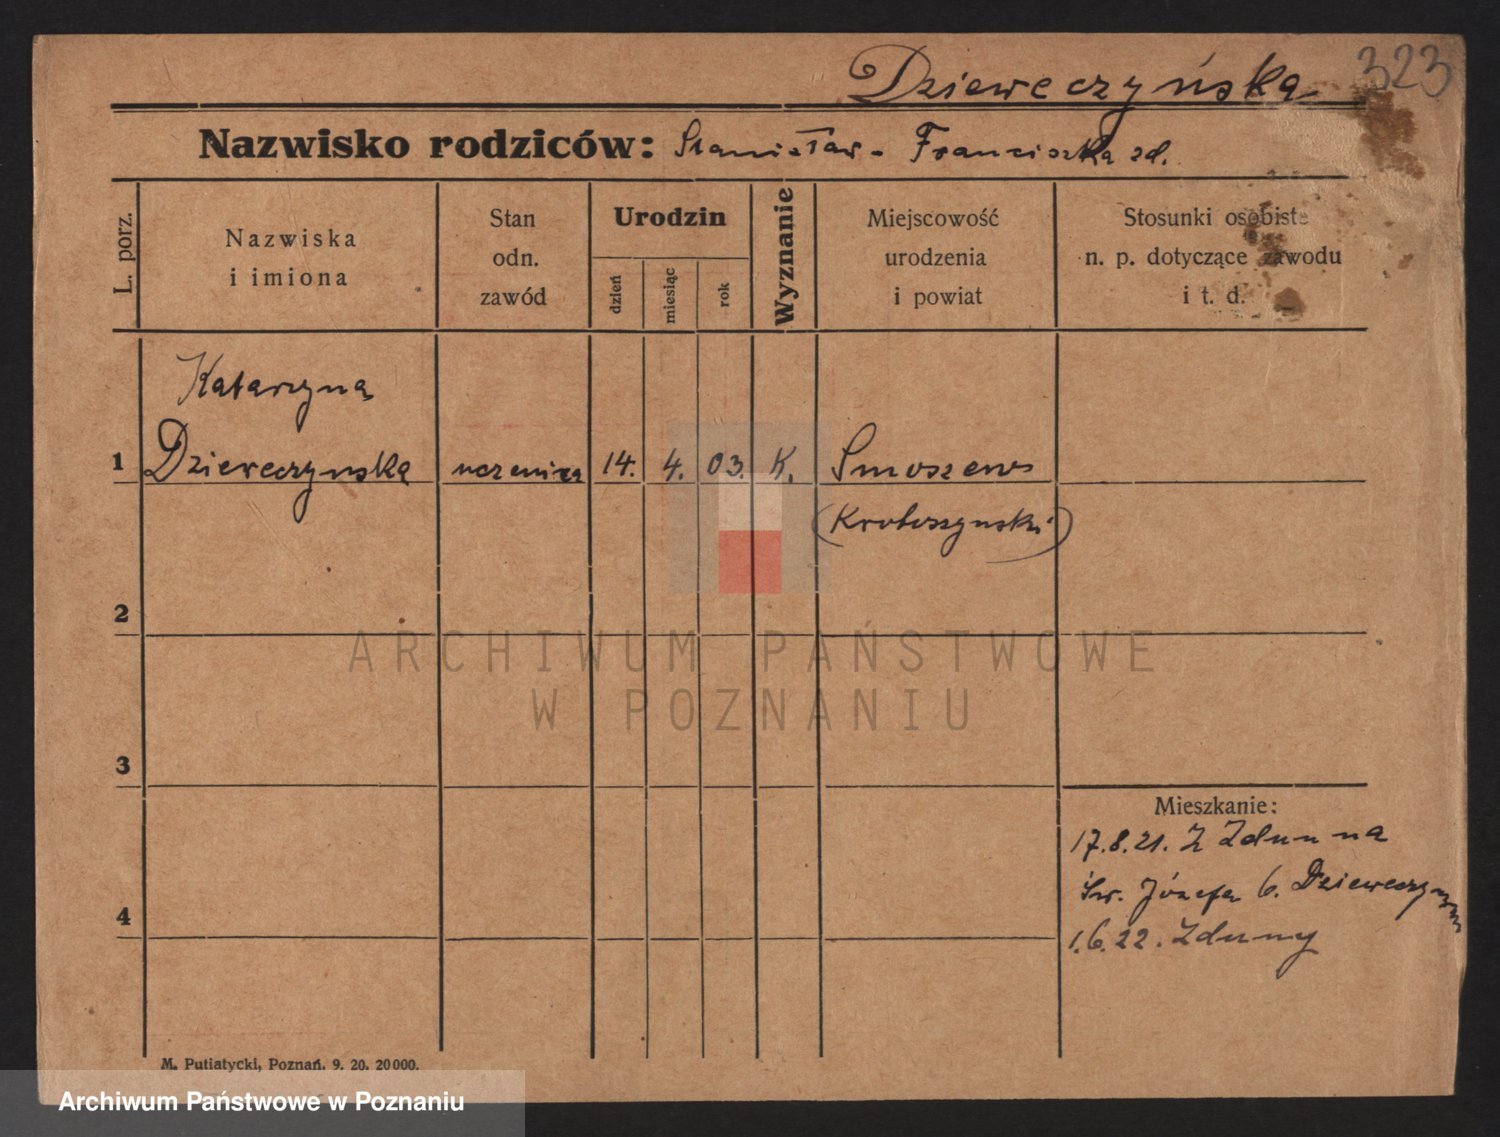 323
Dzieweczyńska
Nazwisko rodziców: Stanisław - Franciszka zd.
L. porz.
Nazwiska
i imiona
Stan
odn.
zawód
Urodzin
dzień
miesiąc
rok
Wyznanie
Miejscowość
urodzenia
i powiat
Stosunki osobiste
n. p. dotyczące zawodu
i t. d.
Katarzyna
1 Dzieweczynska uczenica 14. 4. 03. K. Smoszew
(Krotoszynski)
2
ARCHIWUM PAŃSTWOWE
W POZNANIU
3
Mieszkanie:
17.8.21. Z Zdun na
Św. Józefa 6. Dzieweczynski
4
1.6.22. Zduny
M. Putiatycki, Poznań. 9. 20. 20000.
Archiwum Państwowe w Poznaniu